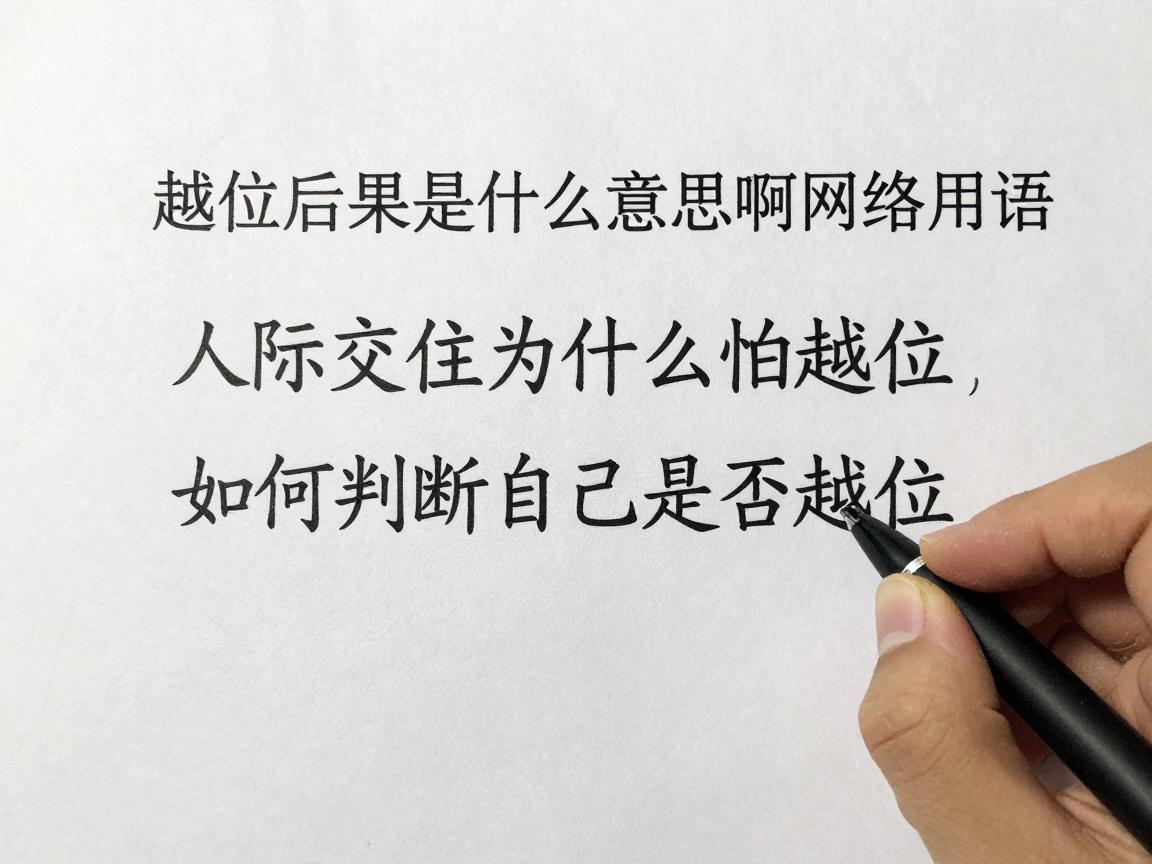 越位后果是什么意思啊网络用语
人际交住为什么怕越位，
如何判断自己是否越位